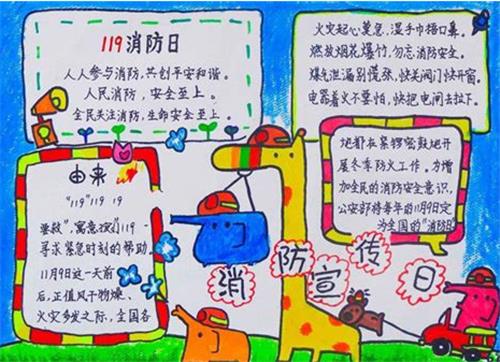 119消防日
人人参与消防,共创平安和谐。
人民消防,安全至上。
全民关注消防,生命安全至上。
火灾起心莫急,湿手巾捂口鼻。
燃放烟花爆竹,勿忘消防安全。
煤气泄漏别慌张,快关阀门快开窗。
电器着火不要怕,快把电闸去拉下。
由来
"119" 119 19
救",寓意 119
寻求紧急时刻的帮助。
11月9日这一天前
后,正值风干物燥、
火灾多发之际,全国各
地都在紧锣密鼓地开
展冬季防火工作。为增
加全民的消防安全意识,
公安部将每年的11月9日定
为全国的"消防日
消防宣传日